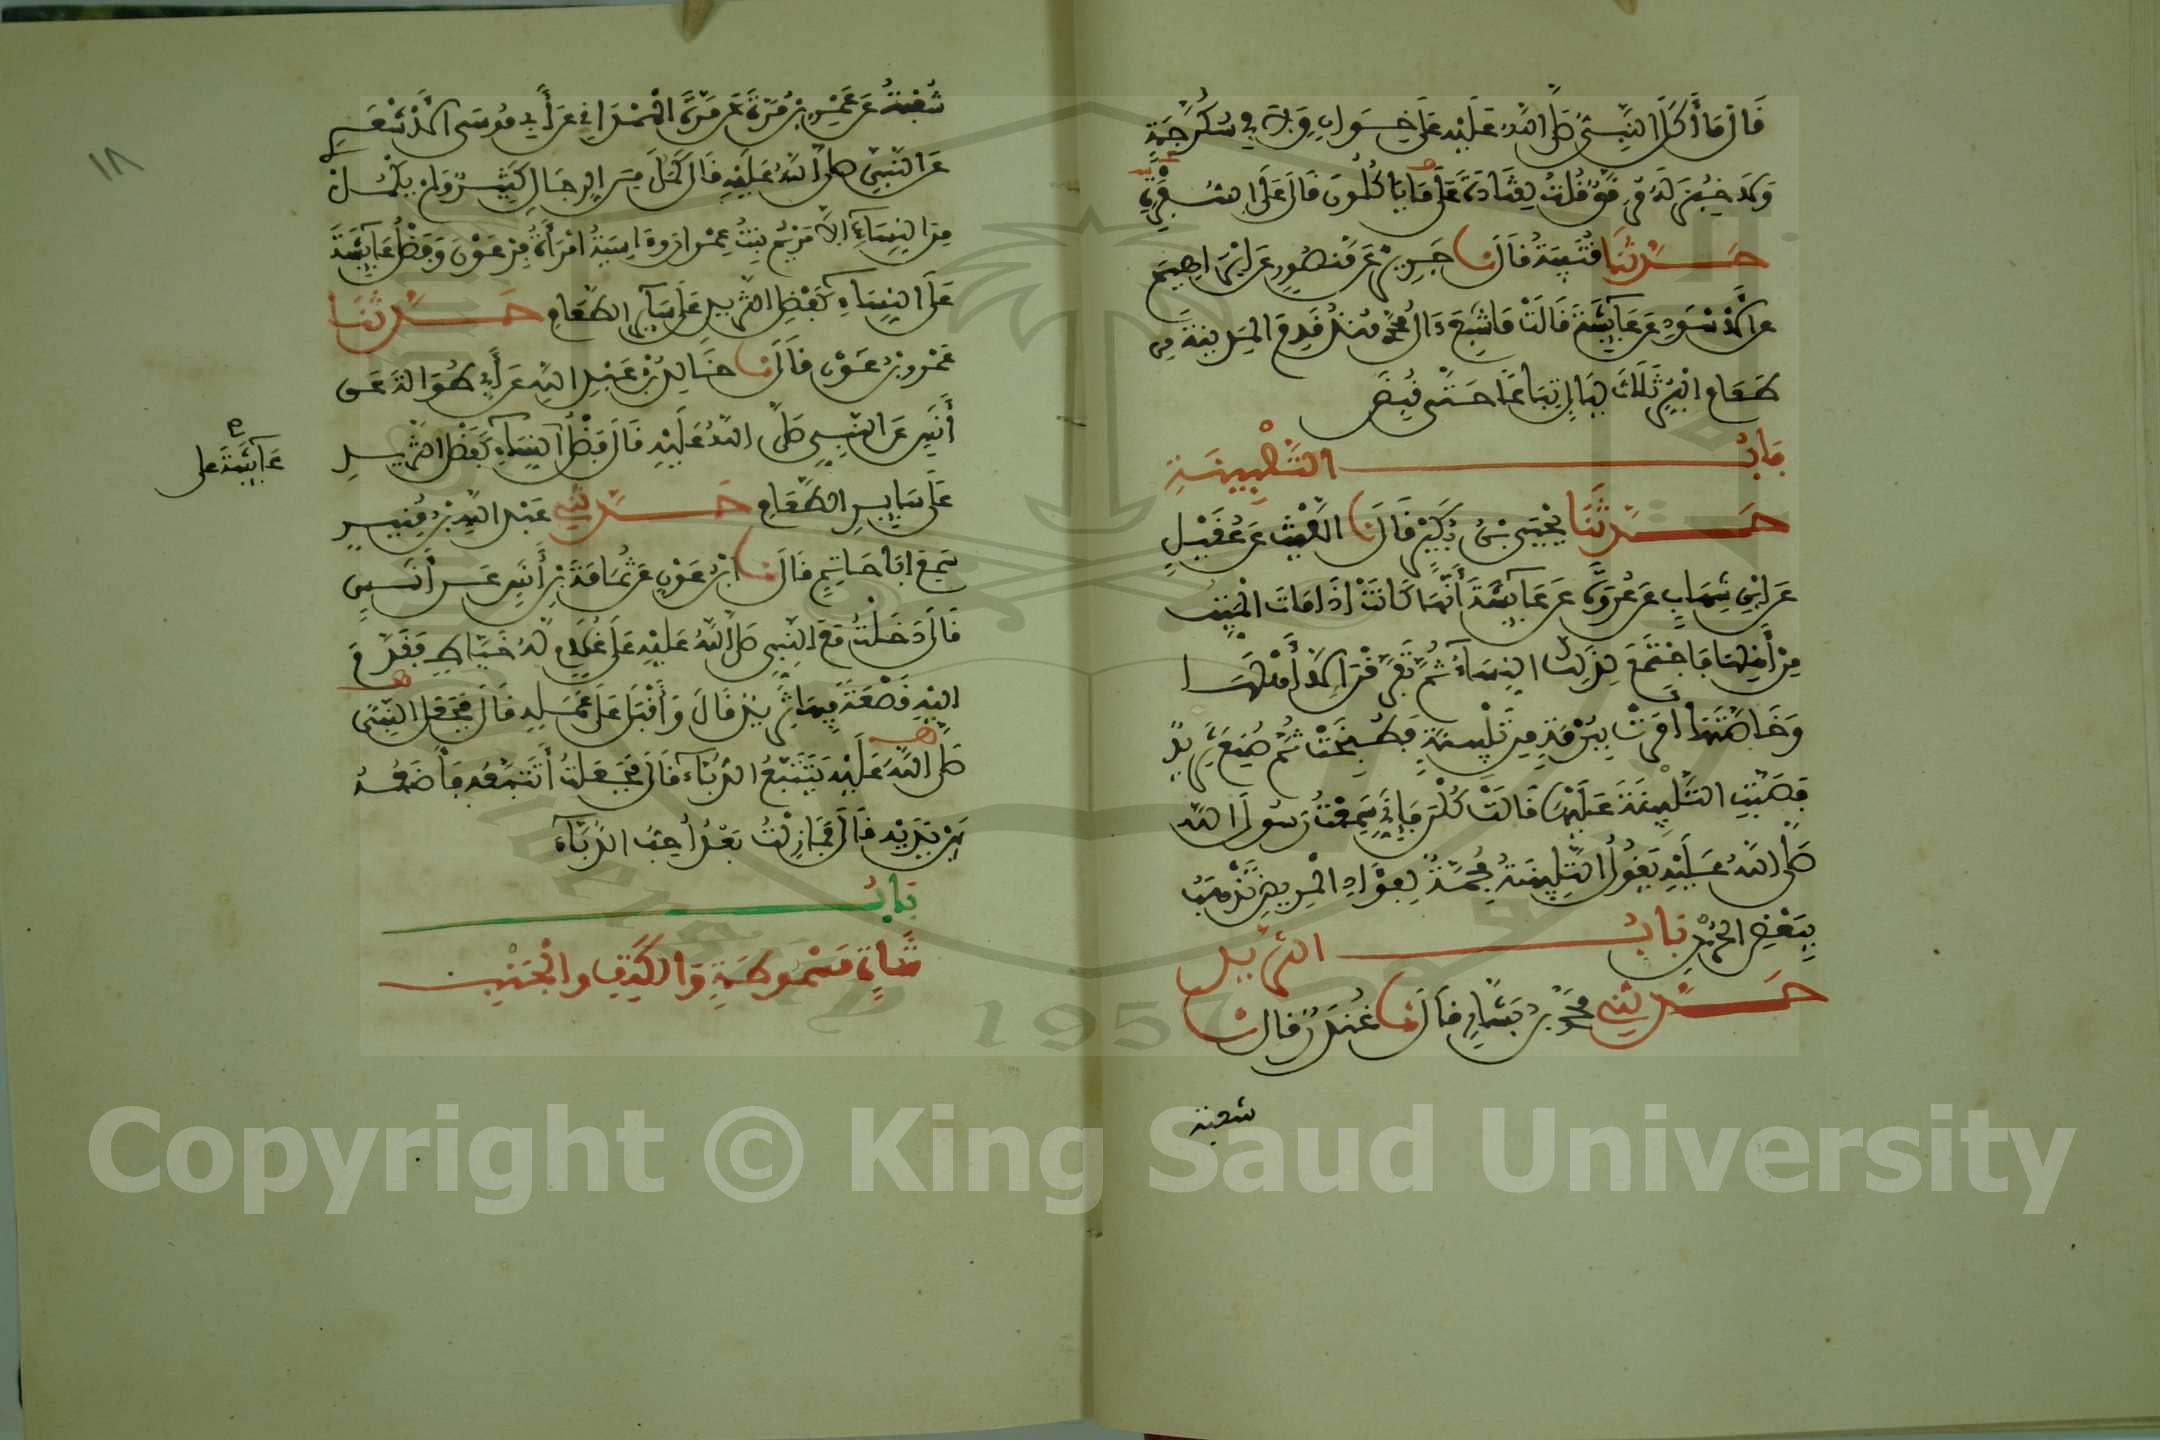 قَالَ مَا أَكَلَ النَّبِيُّ صَلَّى اللَّهُ عَلَيْهِ عَلَى خِوَانٍ وَلَا فِي سُكُرُّجَةٍ
وَلَا خُبِزَ لَهُ مُرَقَّقٌ قُلْتُ لِقَتَادَةَ عَلَى مَا يَاكُلُونَ قَالَ عَلَى السُّفَرِ
حَدَّثَنَا قُتَيْبَةُ قَالَ نَا جَرِيرٌ عَن مَنْصُورٍ عَن إِبْرَاهِيمَ
عَنِ الْأَسْوَدِ عَن عَائِشَةَ قَالَتْ مَا شَبِعَ ءَالُ مُحَمَّدٍ مُنْذُ قَدِمَ الْمَدِينَةَ مِن
طَعَامِ الْبُرِّ ثَلَاثَ لَيَالٍ تِبَاعًا حَتَّى قُبِضَ
بَابُ التَّلْبِينَةِ
حَدَّثَنَا يَحْيَى بْنُ بُكَيْرٍ قَالَ نَا اللَّيْثُ عَن عُقَيْلٍ
عَنِ ابْنِ شِهَابٍ عَن عُرْوَةَ عَن عَائِشَةَ أَنَّهَا كَانَتْ إِذَا مَاتَ الْمَيِّتُ
مِنْ أَهْلِهَا فَاجْتَمَعَ لِذَلِكَ النِّسَاءُ ثُمَّ تَفَرَّقْنَ إِلَّا أَهْلَهَا
وَخَاصَّتَهَا أَمَرَتْ بِبُرْمَةٍ مِن تَلْبِينَةٍ فَطُبِخَتْ ثُمَّ صُنِعَ ثَرِيدٌ
فَصُبَّتِ التَّلْبِينَةُ عَلَيْهَا قَالَتْ كُلْنَ فَإِنِّي سَمِعْتُ رَسُولَ اللَّهِ
صَلَّى اللَّهُ عَلَيْهِ يَقُولُ التَّلْبِينَةُ مُجِمَّةٌ لِفُؤَادِ الْمَرِيضِ تَذْهَبُ
بِبَعْضِ الْحُزْنِ بَابُ الثَّرِيدِ
حَدَّثَنِي مُحَمَّدُ بْنُ بَشَّارٍ قَالَ نَا غُنْدَرٌ قَالَ نَا
شعبة
١٨
شُعْبَةُ عَن عَمْرِو بْنِ مُرَّةَ عَن مُرَّةَ الْهَمْدَانِيِّ عَن أَبِي مُوسَى الْأَشْعَرِي
عَنِ النَّبِيِّ صَلَّى اللَّهُ عَلَيْهِ قَالَ كَمُلَ مِنَ الرِّجَالِ كَثِيرٌ وَلَمْ يَكْمُلْ
مِنَ النِّسَاءِ إِلَّا مَرْيَمُ بِنْتُ عِمْرَانَ وَءَاسِيَةُ امْرَأَةُ فِرْعَوْنَ وَفَضْلُ عَائِشَةَ
عَلَى النِّسَاءِ كَفَضْلِ الثَّرِيدِ عَلَى سَائِرِ الطَّعَامِ حَدَّثَنَا
عَمْرُو بْنُ عَوْنٍ قَالَ نَا خَالِدُ بْنُ عَبْدِ اللَّهِ عَن أَبِي طُوَالَةَ عَن
أَنَسٍ عَنِ النَّبِيِّ صَلَّى اللَّهُ عَلَيْهِ قَالَ فَضْلُ النِّسَاءِ كَفَضْلِ الثَّرِيدِ
عَائِشَةَ على
عَلَى سَائِرِ الطَّعَامِ حَدَّثَنِي عَبْدُ اللَّهِ بْنُ مُنِيرٍ
سَمِعَ أَبَا حَاتِمٍ قَالَ نَا ابْنُ عَوْنٍ عَن ثُمَامَةَ بْنِ أَنَسٍ عَن أَنَسٍ
قَالَ دَخَلْتُ مَعَ النَّبِيِّ صَلَّى اللَّهُ عَلَيْهِ عَلَى غُلَامٍ لَهُ خَيَّاطٍ فَقَدَّمَ
إِلَيْهِ قَصْعَةً فِيهَا ثَرِيدٌ قَالَ وَأَقْبَلَ عَلَى عَمَلِهِ قَالَ فَجَعَلَ النَّبِيُّ
صَلَّى اللَّهُ عَلَيْهِ يَتَتَبَّعُ الدُّبَّاءَ قَالَ فَجَعَلْتُ أَتَتَبَّعُهُ فَأَضَعُهُ
بَيْنَ يَدَيْهِ قَالَ فَمَا زِلْتُ بَعْدُ أُحِبُّ الدُّبَّاءَ
بَابُ
شَاةٍ مَسْمُوطَةٍ وَالْكَتِفِ وَالْجَنْبِ
Copyright © King Saud University
1957